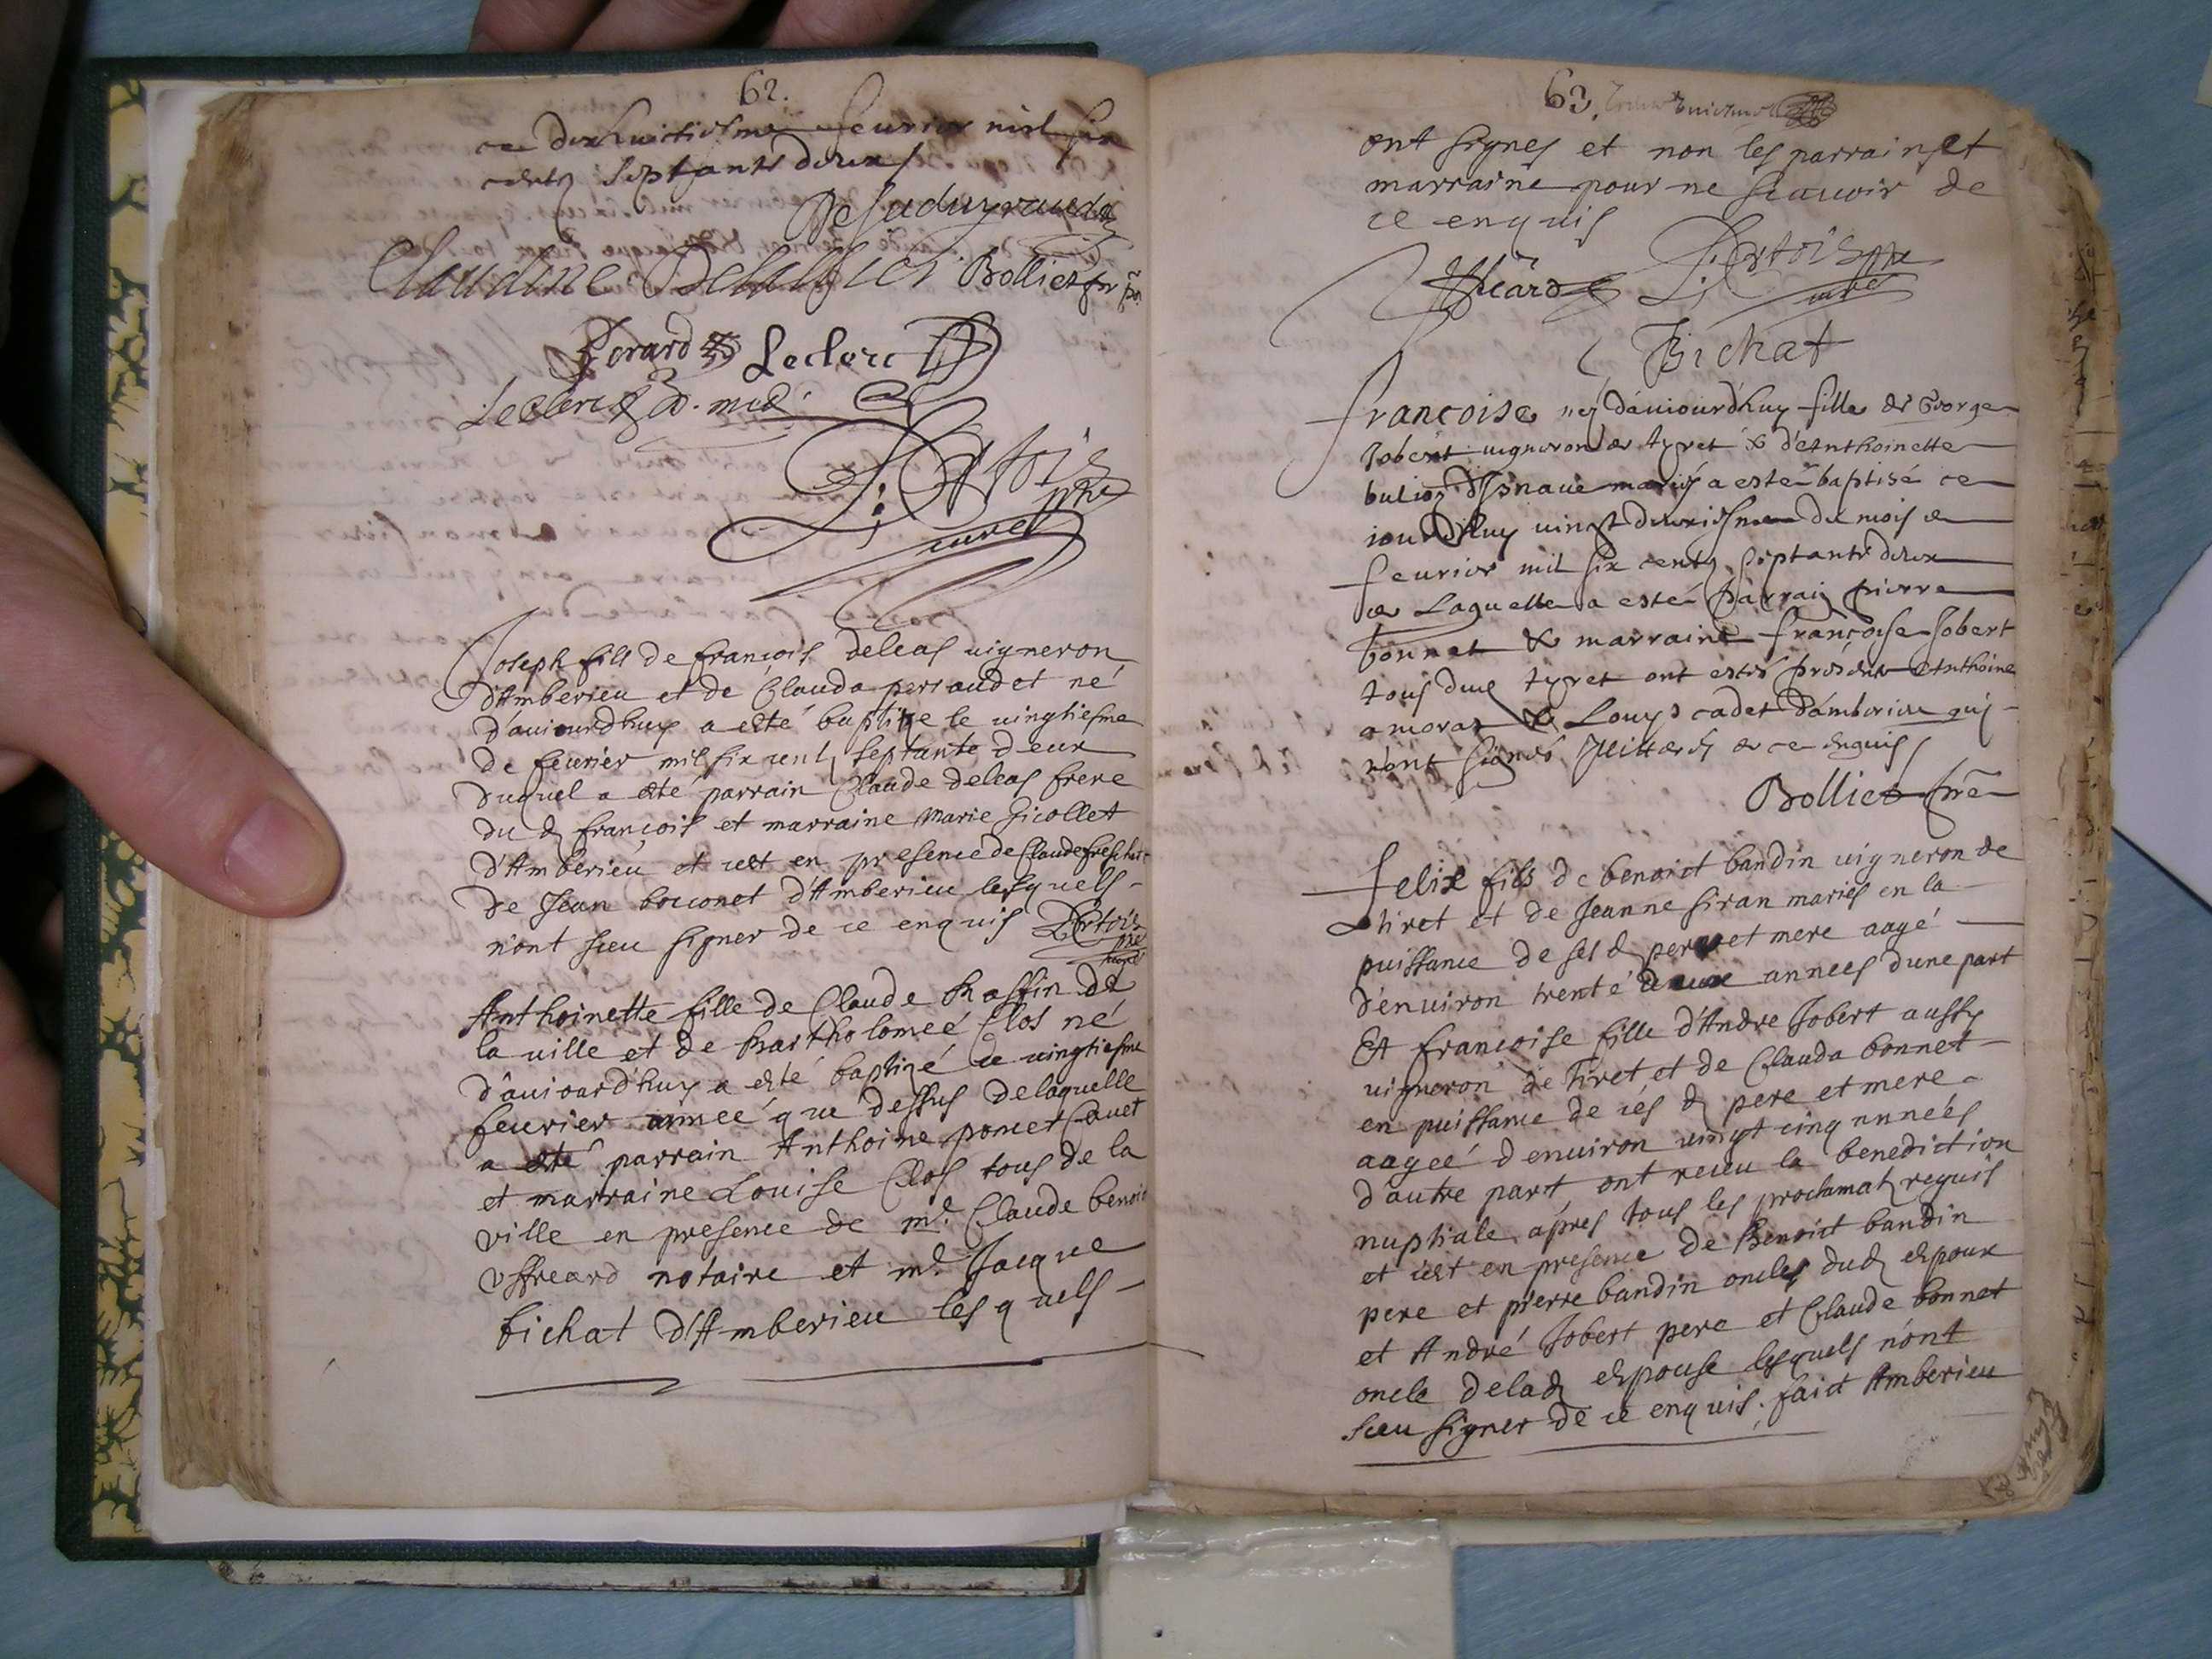 62.
ce dixhuictiesme feurier mil six
centz septante deux
Claudine Bolliet
Gerard Leclerc
Leclerc D. med.
D. Artois pbre
curé
Joseph fils de françois deleas uigneron
d'Amberieu et de Clauda perraudet né
d'auiourdhuy a esté baptize le uingtiesme
de feurier mil six centz septante deux
duquel a esté parrain Claude deleas frere
du d françois et marraine Marie Gicollet
d'Amberieu et cest en presence de Claude
de Jean bouconet d'Amberieu lesquels
n'ont sceu signer de ce enquis D. Artois
pbre
curé
Anthoinette fille de Claude Raffin de
la uille et de Bartholomeé Clos né
d'auiourd'huy a esté baptizé ce uingtiesme
feurier anneé que dessus de laquelle
a esté parrain Anthoine poncet
et marraine Louise Clos tous de la
ville en presence de me. Claude benoit
notaire et me. Jacque
bichat d'Amberieu lesquels
63.
ont signes et non les parrain et
marraine pour ne scauoir de
ce enquis
D. Artois pbre
curé
Bichat
francoise neé d'auiourd'huy fille de George
Jobert uigneron de tyret & d'Anthoinette
mariés a esté baptisé ce
iourdhuy uingt deuxiesme du mois de
feurier mil six centz septante deux
de Laquelle a esté parrain pierre
bonnet & marraine françoise Jobert
tous dud tyret ont estés presents Anthoine
amoraz & Louys cadet d'amberieu qui
n'ont signés de ce enquis
Bolliet
felix fils de benoict bandin uigneron de
tiret et de Jeanne siran mariés en la
puissance de ses d pere et mere aagé
d'enuiron trente deux annees dune part
Et francoise fille d'Andre Jobert aussy
uigneron de tiret et de Clauda bonnet
en puissance de ces d pere et mere
aageé d'enuiron uingt cinq anneés
d'autre part ont receu la benediction
nuptiale apres tous les proclamatz requis
et cest en presence de Benoict bandin
pere et pierre bandin oncles dud espoux
et André Jobert pere et Claude bonnet
oncle delad espouse lesquels n'ont
sceu signer de ce enquis. faict Amberieu